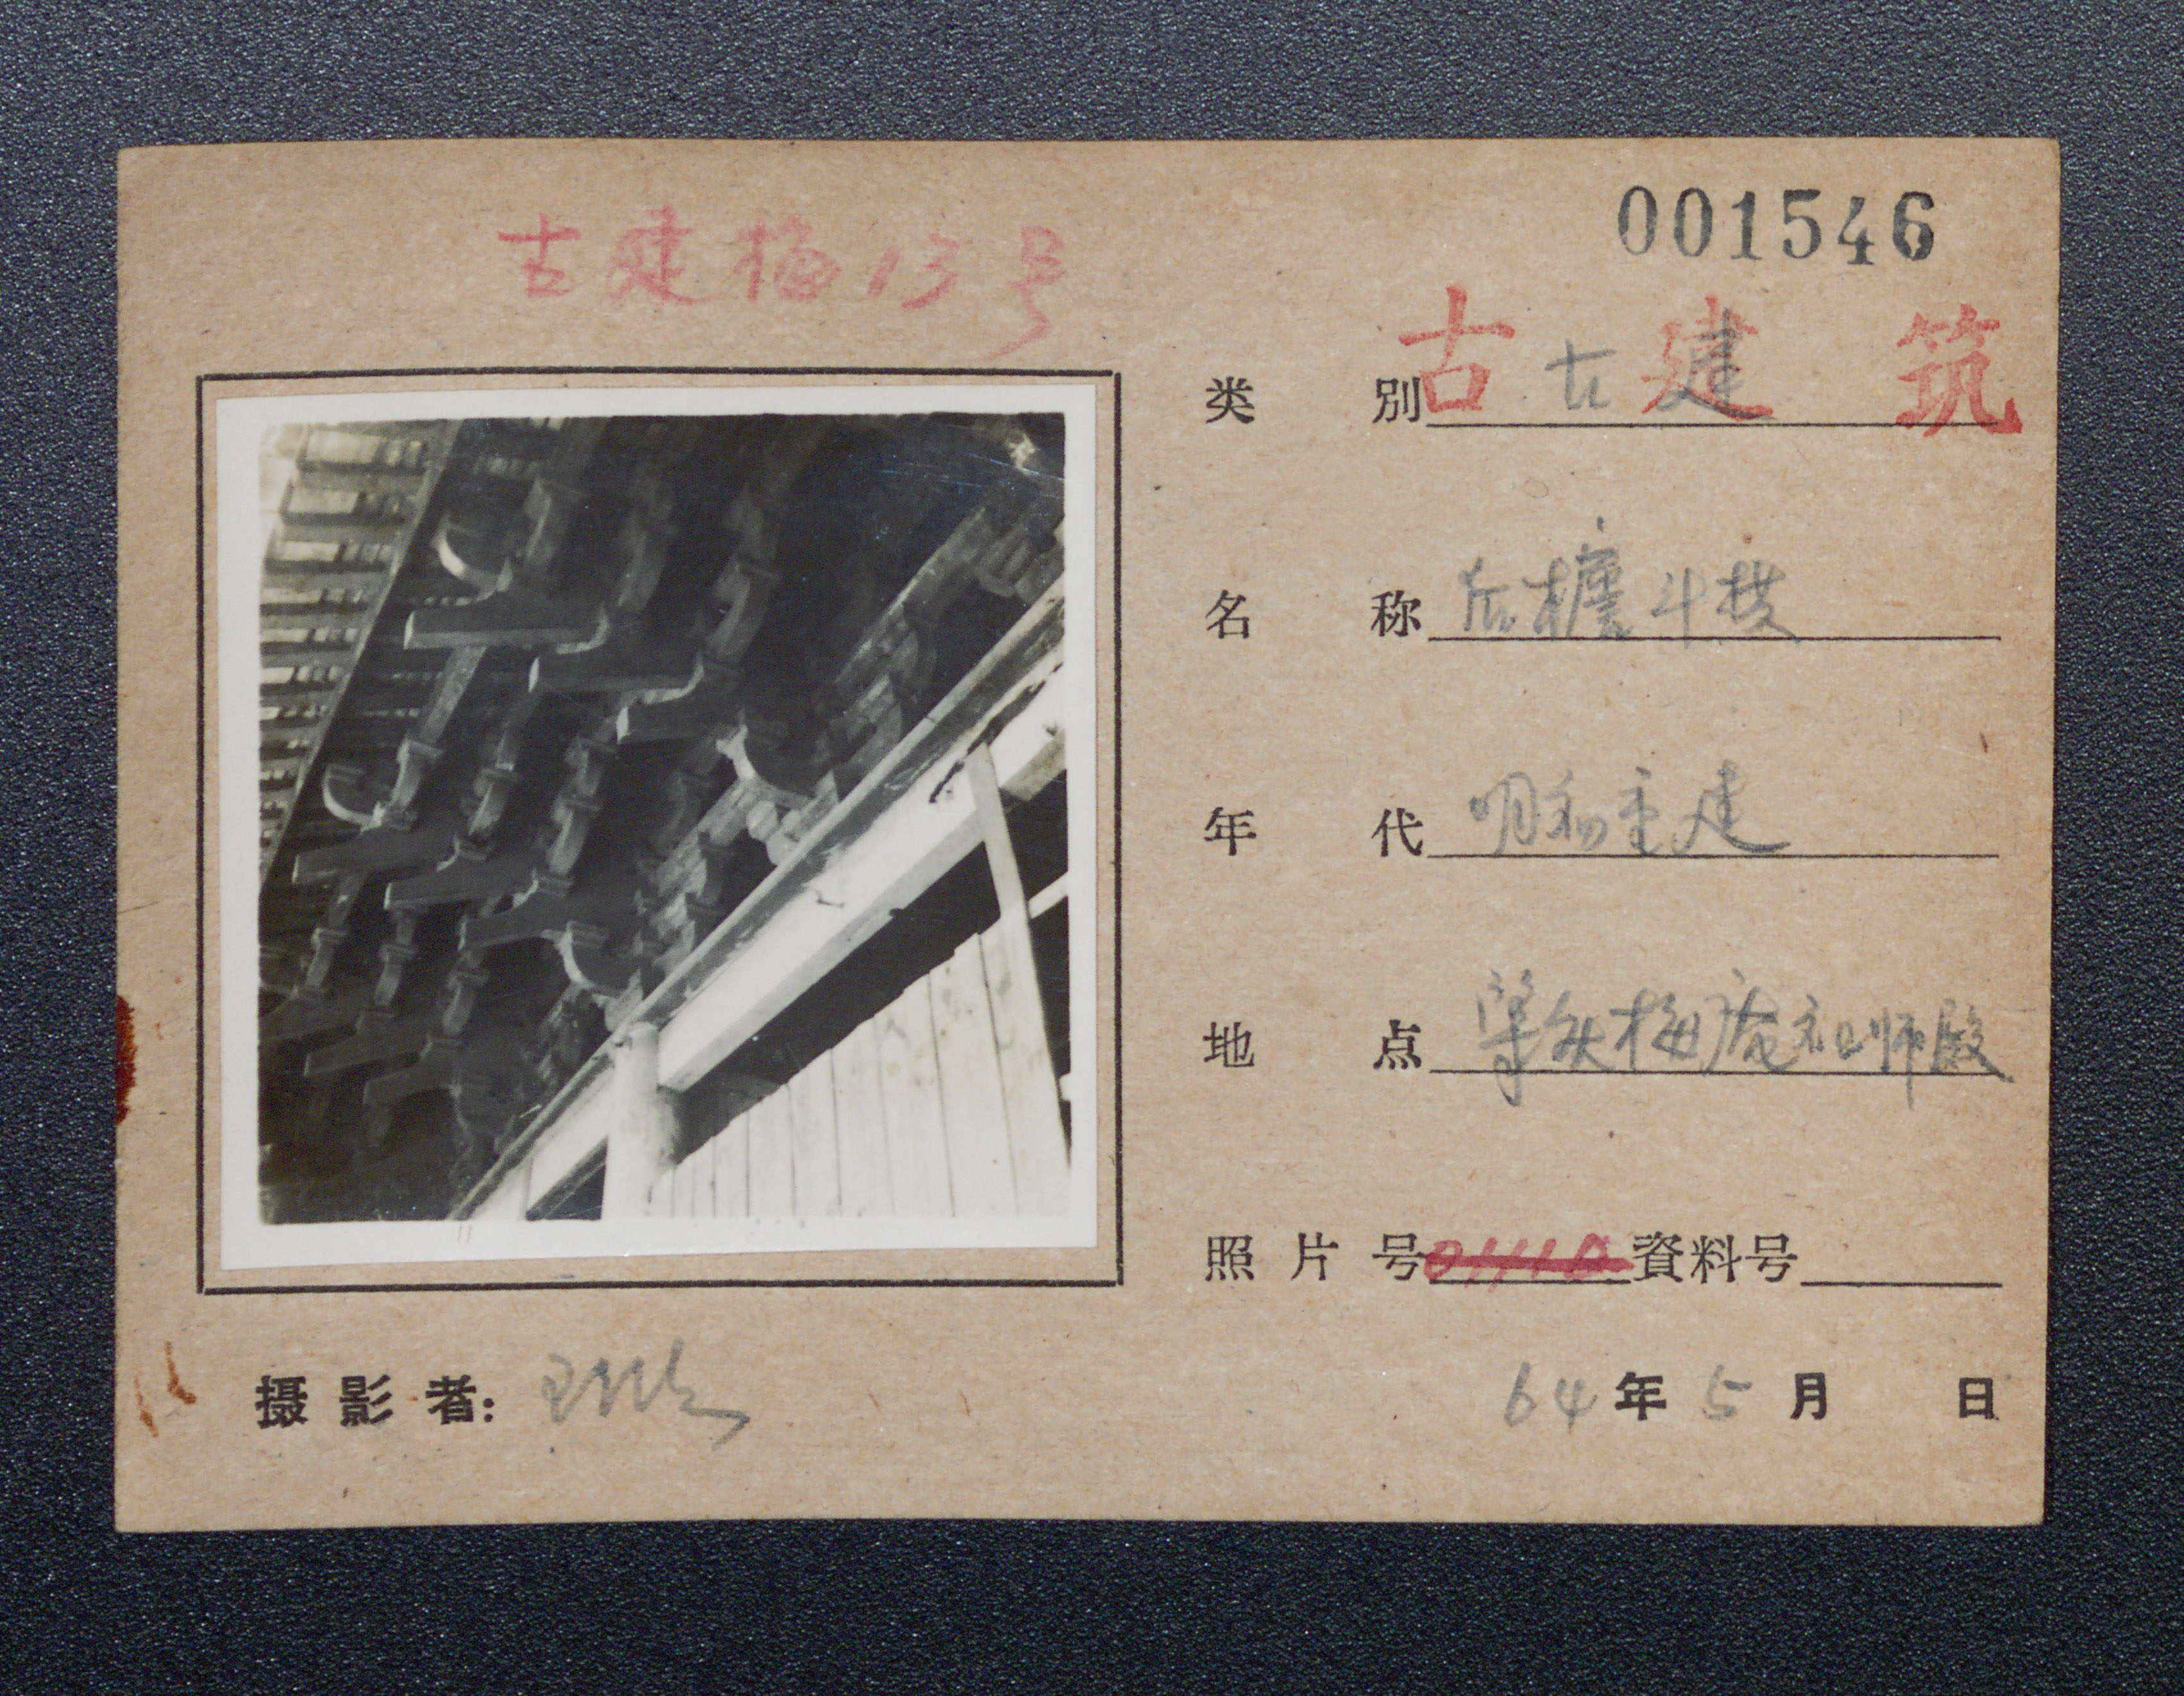 001546
古建梅13号
古建筑
类别 古建
名称 后檐斗拱
年代 明初重建
地点 肇庆梅庵祖师殿
照片号 01110 資料号
摄影者:
64年5月 日